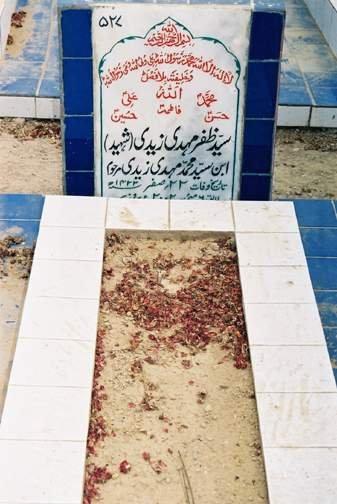 ۵۲۷
بسم الله الرحمن الرحیم
لا اله الا الله محمد رسول الله علی ولی الله وصی رسول الله
وخلیفته بلا فصل
الله
محمد علی
فاطمه
حسن حسین
سید ظفر مهدی زیدی (شهید)
ابن سید محمد مهدی زیدی (مرحوم)
تاریخ وفات ۲۲ صفر ۱۴۲۳ھ